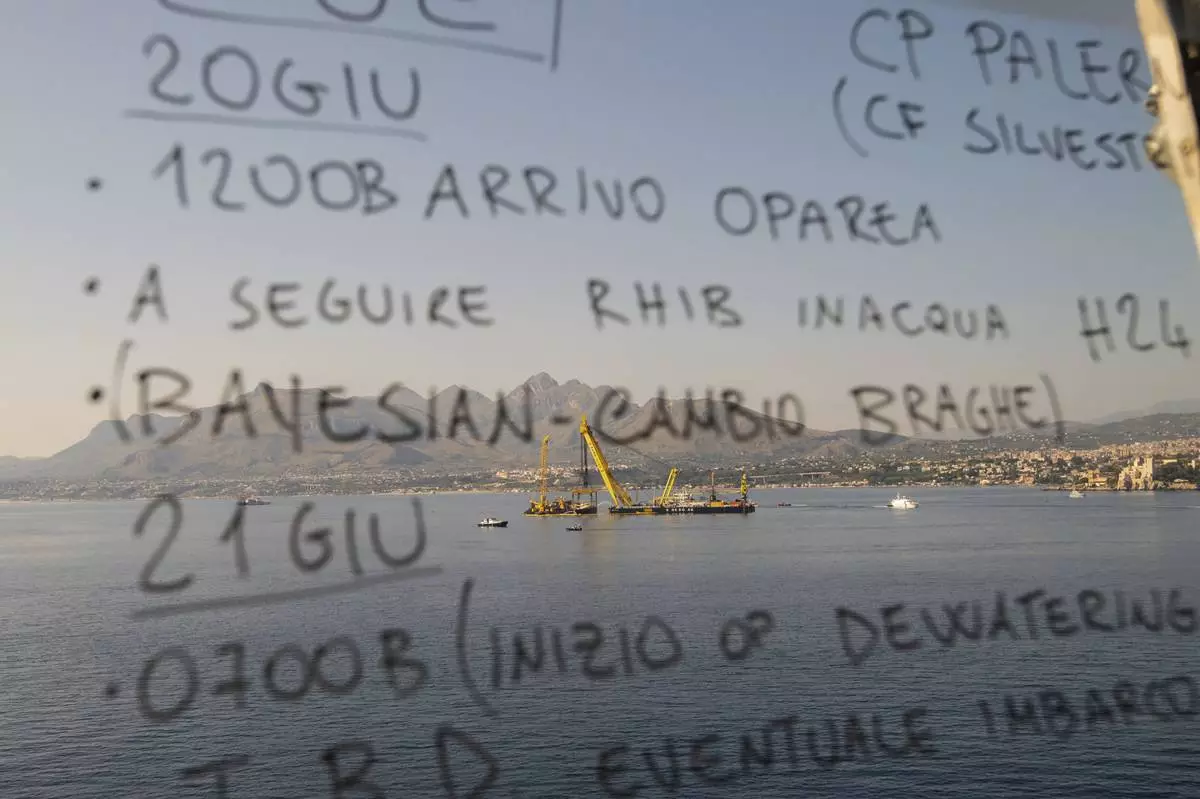 20GIU
CP PALER
(CF SILVEST
• 1200B ARRIVO OPAREA
• A SEGUIRE RHIB IN ACQUA H24
• (BAYESIAN-CAMBIO BRAGHE)
21GIU
• 0700B (INIZIO OP DEWATERING
T.B.D. EVENTUALE IMBARCO